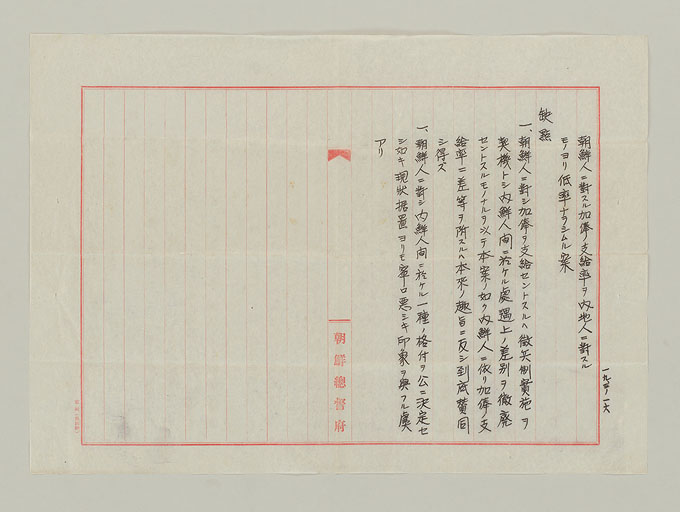 朝鮮人ニ對スル加俸ノ支給率ヲ内地人ニ對スル
モノヨリ低率ナラシムル案
缺點
一、朝鮮人ニ對シ加俸ヲ支給セントスルハ徴兵制實施ヲ
契機トシ内鮮人間ニ於ケル處遇上ノ差別ヲ徹廃
セントスルモノナルヲ以テ本案ノ如ク内鮮人ニ依リ加俸ノ支
給率ニ差等ヲ附スルハ本来ノ趣旨ニ反シ到底賛同
シ得ズ
一、朝鮮人ニ對シ内鮮人間ニ於ケル一種ノ格付ヲ公ニ決定セ
シ如キ現状据置ヨリモ寧ロ悪シキ印象ヲ與フル虞
アリ
朝鮮總督府